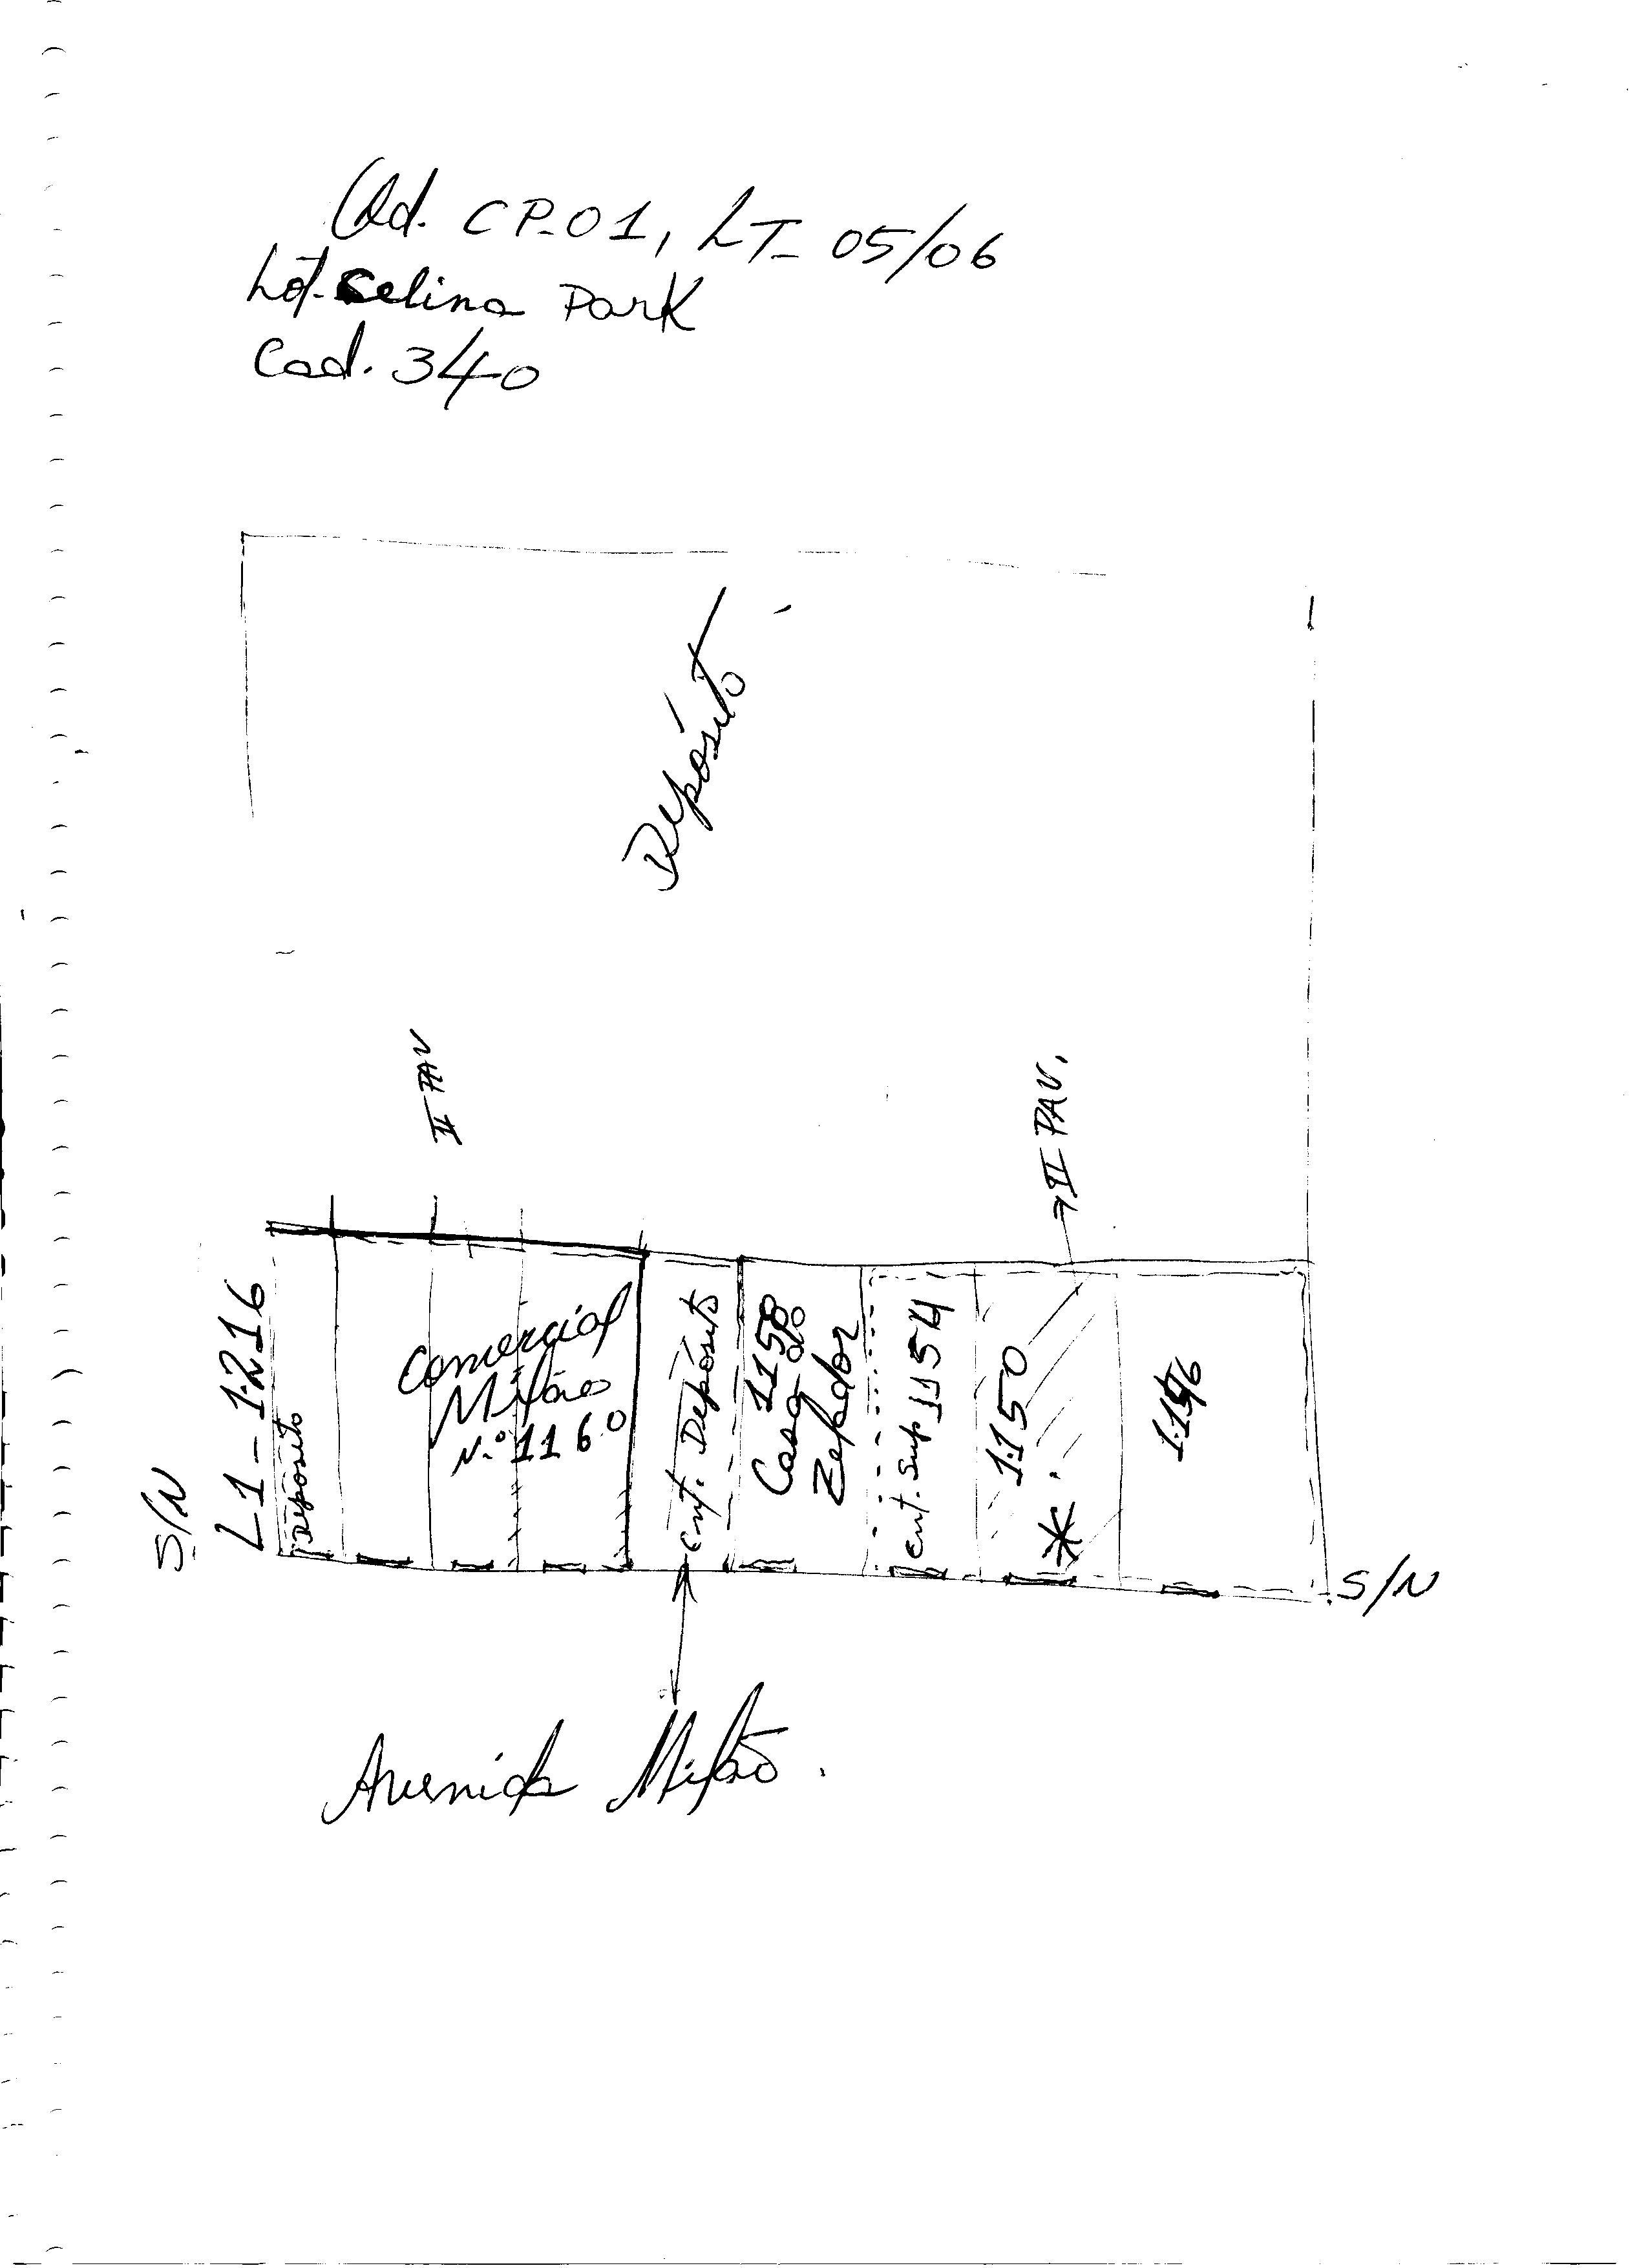 Qd. CP-01, LT- 05/06
Lot. Celina Park
Cad. 340
Depósito
II PAV
II PAV.
S/N
L1-1216
Depósito
Comercial
Milão
N.º 1160
Ent. Depósito
1158
Casa do
Zelador
ent. Sup. 1154
1150
S/N
Avenida Milão.